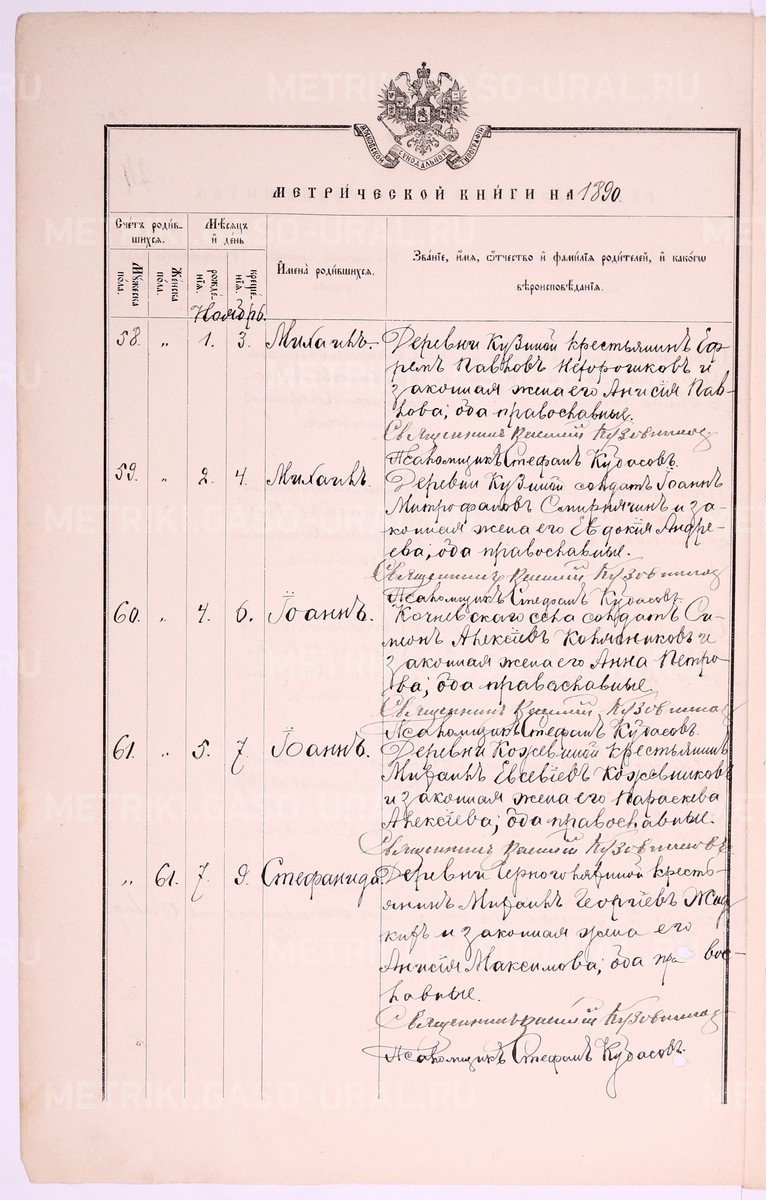 METRIKI.GASO-URAL.RU
МЕТРИ́ЧЕСКОЙ КНИ́ГИ НА 1890.
Счётъ роди́в-
шихся.
Мѣ́сяцъ
и҆ де́нь
И҆мена̀ роди́вшихся.
Зва́нїе, и҆́мѧ, ѻ҆́тчество и҆ фами́лїѧ роди́телей, и҆ како́гѡ
вѣроисповѣ́данїѧ.
Мꙋ́жеска
по́ла.
Же́нска
по́ла.
рожде́-
нїѧ.
креще́-
нїѧ.
Ноябрь.
58. „ 1. 3. Михаилъ. Деревни Кузиной крестьянинъ Еф-
ремъ Павловъ и
законная жена его Анисія Пав-
лова; оба православные.
Священникъ Василій
Псаломщикъ Стефанъ Кудасовъ.
59. „ 2. 4. Михаилъ. Деревни Кузиной солдатъ Іоаннъ
Митрофановъ Смирнягинъ и за-
конная жена его Евдокія Андре-
ева; оба православные.
Священникъ Василій
Псаломщикъ Стефанъ Кудасовъ
60. „ 4. 6. Іоаннъ. Кочневскаго села солдатъ Си-
меонъ Алексіевъ и
законная жена его Анна Петро-
ва; оба православные.
Священникъ Василій
Псаломщикъ Стефанъ Кудасовъ.
61. „ 5. 7. Іоаннъ. Деревни Кожевиной крестьянинъ
Михаилъ Евсевіевъ Кожевниковъ
и законная жена его Параскева
Алексіева; оба православные.
Священникъ Василій
„ 61. 7. 9. Стефанида. Деревни Черноголятиной кресть-
янинъ Михаилъ Георгіевъ
и законная жена его
Анисія Максимова; оба православ-
славные.
Священникъ Василій
Псаломщикъ Стефанъ Кудасовъ.